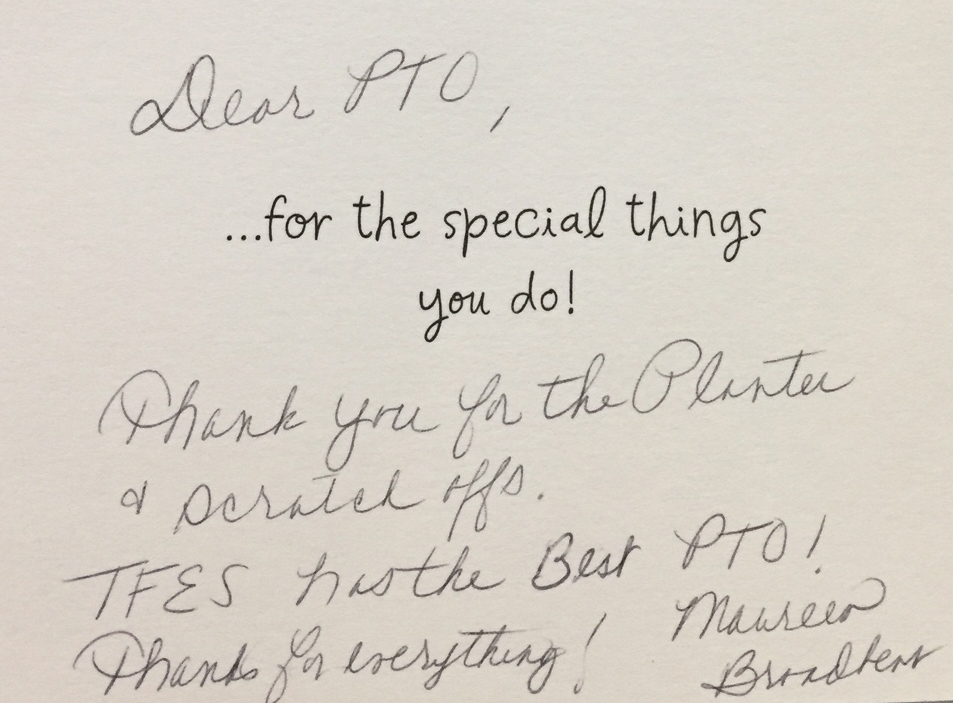 Dear PTO,
...for the special things
you do!
Thank you for the Planter
& scratch offs.
TFES has the Best PTO!
Thanks for everything! Maureen
Broadbent